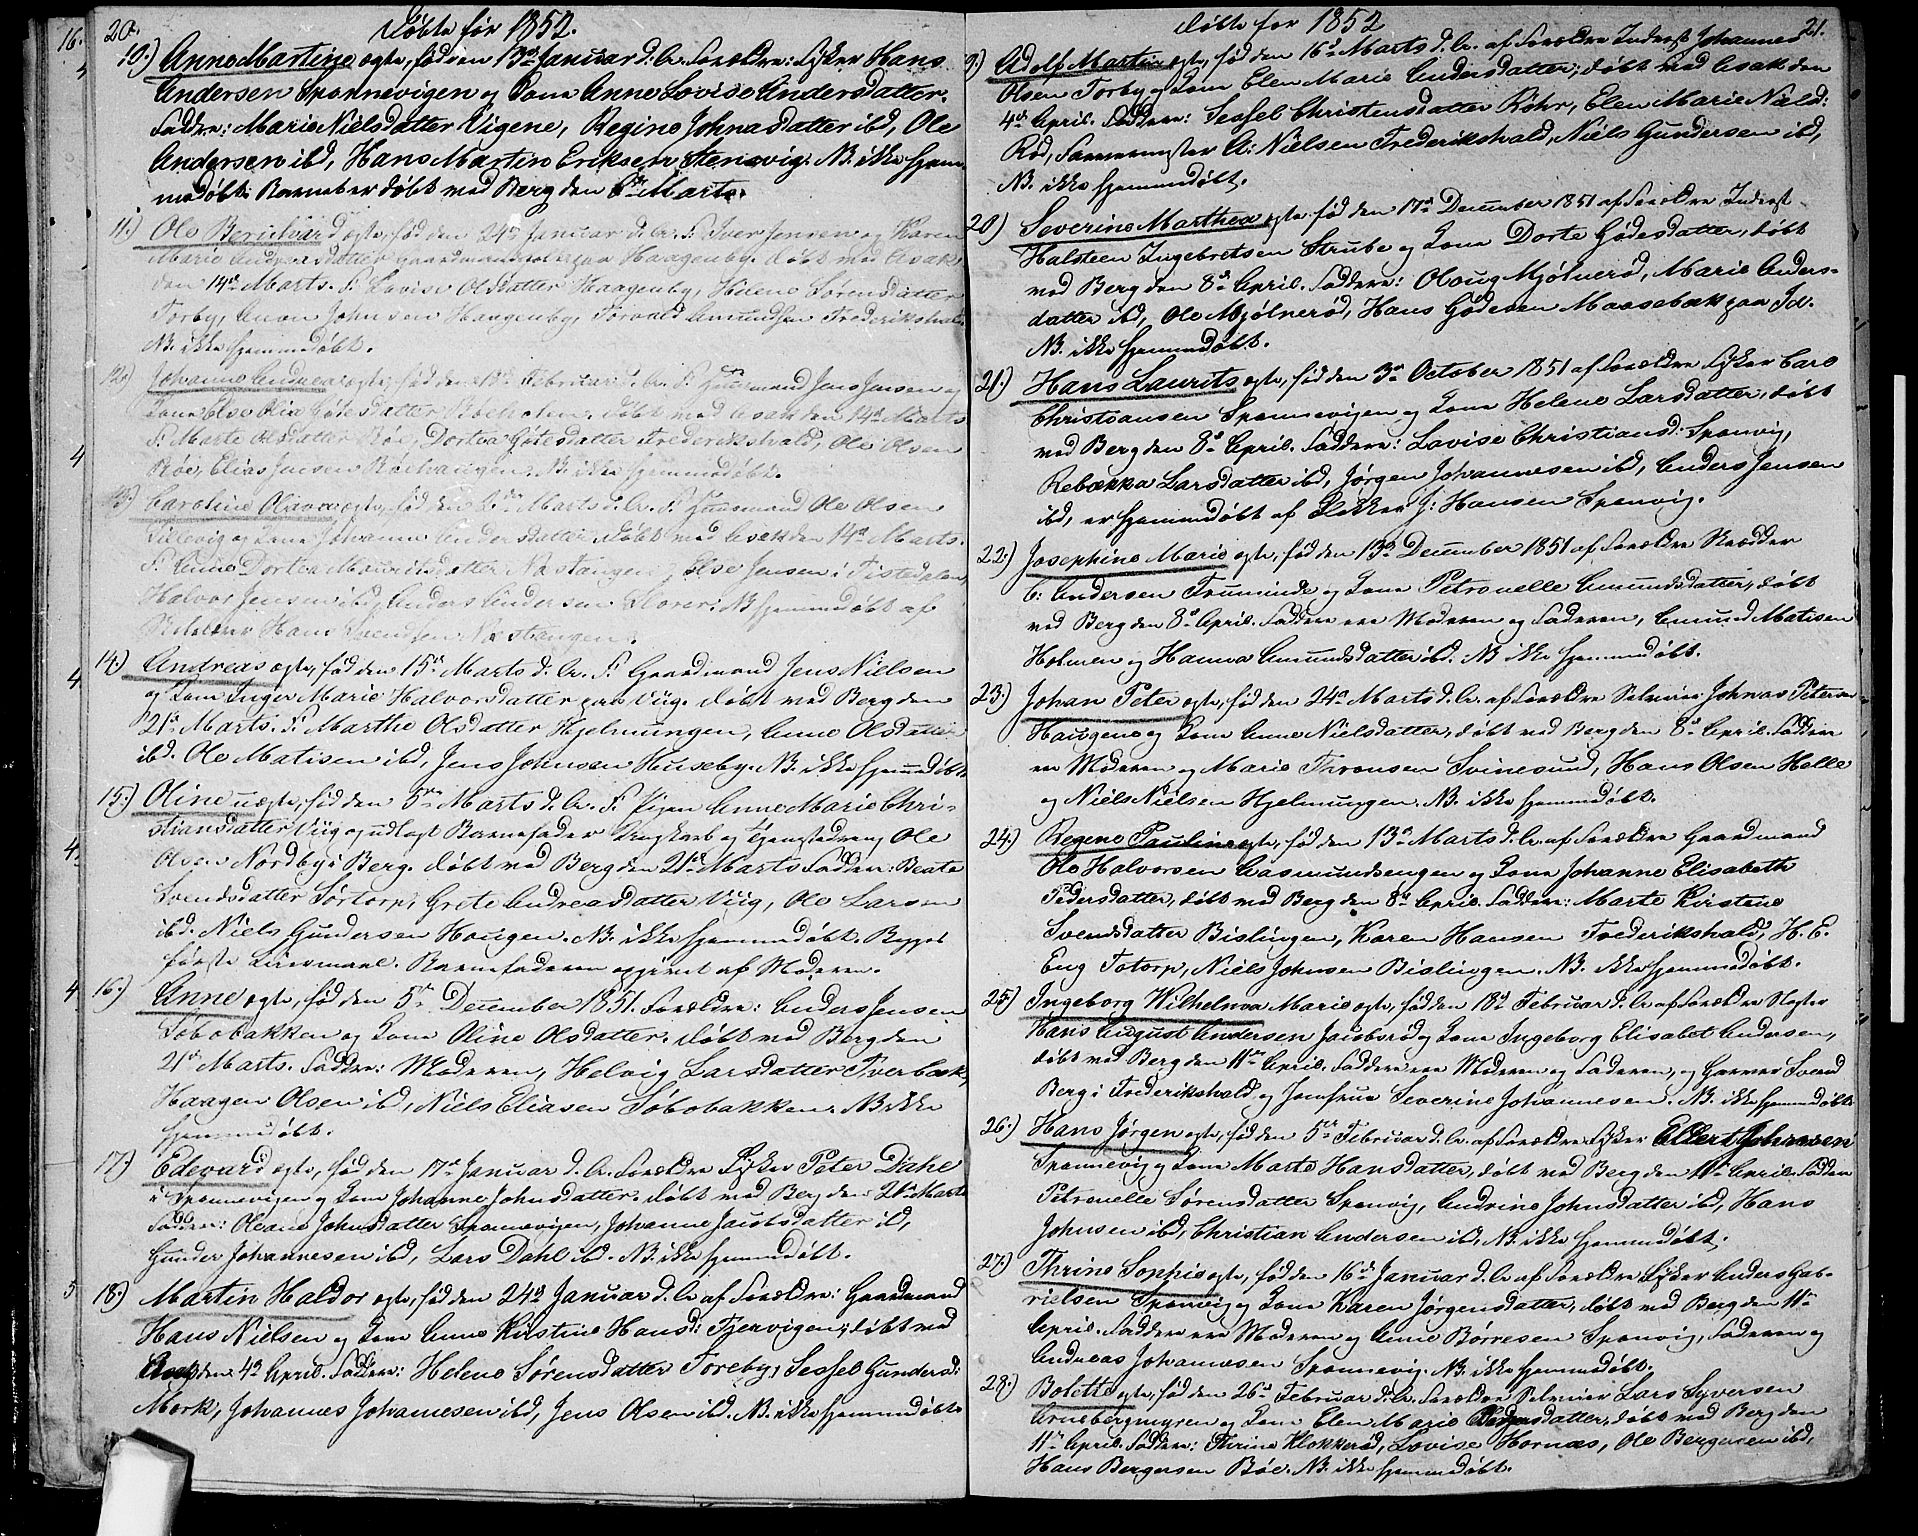 20.
Døbte før 1852.
10.) Anne Martine ægte, fød den 13de Januar d. A. Forældre: Fisker Hans
Andersen Sponnevigen og Kone Anne Lovise Andersdatter.
Faddere: Marie Nielsdatter Vigene, Regine Johnasdatter ibd, Ole
Andersen ibd, Hans Martin Eriksen Stensvig. NB. ikke hjem-
medøbt. Barnet er døbt ved Berg den 6te Marts.
11.) Ole Bernhard ægte, fød den 24de Januar d. A. F. Iver Jensen og Karen
Marie Andreasdatter paa Haagenby. døbt ved Asak
den 14de Marts. F. Lovise Olsdatter Haagenby, Helene Sørensdatter
Torby, Johnsen Haagenby, Torvald Amundsen Frederikshald.
NB. ikke hjemmedøbt.
12.) Johanne Andrea ægte, fød den Februar d. A. F. Huusmand Jens Jensen og
Kone Else Olia Gødesdatter døbt ved Asak den 14de Marts
F. Marte Olsdatter Røe, Dortea Gødesdatter Frederikshald, Ole Olsen
Røe, Elias Jensen NB. ikke hjemmedøbt.
13.) Caroline Olava ægte, fød den Marts d. A. F. Huusmand Ole Olsen
og Kone Johanne Andersdatter døbt ved Asak den 14de Marts.
F. Anne Dortea Mauritsdatter Næstangen, Else Jensen i Tistedalen,
Halvor Jensen ibd, Anders Andersen NB hjemmedøbt af
Hans Svendsen Næstangen.
14.) Andreas ægte, fød den 15de Marts d. A. F. Gaardmand Jens Nielsen
og Kone Inger Marie Halvorsdatter paa Viig. døbt ved Berg den
21de Marts. F. Marthe Olsdatter Hjelmungen, Anne Olsdatter
ibd. Ole Matisen ibd, Jens Johnsen Huseby. NB. ikke hjemmedøbt
15.) Oline uægte, fød den 5te Marts d. A. F. Pigen Anne Marie Chri-
stiansdatter Viig og udlagt Barnefader Ungkarl og Tjenestedreng Ole
Olsen Nordby i Berg. døbt ved Berg den 21de Marts Faddere: Beate
Svendsdatter Sørtorp, Grete Andreasdatter Viig, Ole Larsen
ibd. Niels Gundersen Haugen. NB. ikke hjemmedøbt. Begges
første Leiermaal. Barnefaderen opgivet af Moderen.
16.) Anne ægte, fød den 5te December 1851. Forældre: Anders Jensen
Søbobakken og Kone Oline Olsdatter. døbt ved Berg den
21de Marts. Faddere: Moderen, Helvig Larsdatter Tverbæk,
Haagen Olsen ibd, Niels Eliasen Søbobakken. NB ikke
hjemmedøbt.
17.) Edevard ægte, fød den 17de Januar d. A. Forældre Fisker Peter Dahl
i Sponnevigen og Kone Johanne Johnsdatter. døbt ved Berg den 21de Marts
Faddere: Oleane Johnsdatter Sponnevigen, Johanne Jacobsdatter ibd,
Gunder Johannesen ibd, Lars Dahl ibd. NB. ikke hjemmedøbt.
18.) Martin Haldor ægte, fød den 24de Januar d. A. af Forældre: Gaardmand
Hans Nielsen og Kone Anne Kirstine Hansd: Tjervigen; døbt ved
Asak den 4de April. Faddere: Helene Sørensdatter Toreby, Sessel Gundersd:
Mørk, Johannes Johannesen ibd, Jens Olsen ibd. NB. ikke hjemmedøbt
Døbte før 1852
21.
19.) Adolf Martin ægte, fød den 16de Marts d. A. af Forældre Inderst Johannes
Olsen Torby og Kone Elen Marie Andersdatter; døbt ved Asak den
4de April. Faddere: Sessel Christensdatter Röhr, Elen Marie Nield:
Rød, A: Nielsen Frederikshald, Niels Gundersen ibd,
NB. ikke hjemmedøbt.
20.) Severine Marthea ægte, fød den 17de December 1851 af Forældre Inderst
Halsteen Ingebretsen Strube og Kone Dorte Gødesdatter, døbt
ved Berg den 8de April. Faddere: Oloug Mjølnerød, Marie Anders-
datter ibd, Ole Mjølnerød, Hans Gødesen Maasebæk paa Id.
NB. ikke hjemmedøbt.
21.) Hans Laurits ægte, fød den 3de October 1851 af Forældre Fisker Carl
Christiansen Sponnevigen og Kone Helene Larsdatter, døbt
ved Berg den 8de April. Faddere: Lovise Christiansd. Sponvig,
Rebekka Larsdatter ibd, Jørgen Johannesen ibd, Anders Jensen
ibd, er hjemmedøbt af Klokker J: Hansen Sponvig.
22.) Josephine Marie ægte, fød den 13de December 1851 af Forældre Skrædder
C: Andersen og Kone Petronelle Amundsdatter, døbt
ved Berg den 8de April. Faddere ere Moderen og Faderen, Amund Matisen
Holmen og Hanna Amundsdatter ibd. NB ikke hjemmedøbt.
23.) Johan Peter ægte, fød den 24de Marts d. A. af Forældre Selveier Johnas Petersen
Haugene og Kone Anne Nielsdatter, døbt ved Berg den 8de April. Faddere
ere Moderen og Marie Thronsen Svinesund, Hans Olsen Helle
og Niels Nielsen Hjelmungen. NB. ikke hjemmedøbt.
24.) Regene Pauline ægte, fød den 13de Marts d. A. af Forældre Gaardmand
Ole Halvorsen Aasmundsengen og Kone Johanne Elisabeth
Pedersdatter, døbt ved Berg den 8de April. Faddere: Marte Kirstene
Svensdatter Bislingen, Karen Hansen Frederikshald, H. E.
Eng Totorp, Niels Johnsen Bislingen. NB. ikke hjemmedøbt.
25.) Ingeborg Wilhelmna Marie ægte, fød den 18de Februar d. A. af Forældre Slagter
Hans August Andersen Jacobsrød og Kone Ingeborg Elisabet Andersen,
døbt ved Berg den 11te April. Faddere ere Moderen og Faderen, og Garver Svend
Berg i Frederikshald og Jomfrue Severine Johannesen. NB. ikke hjemmedøbt
26.) Hans Jørgen ægte, fød den 5te Februar d. A. af Forældre Fisker Ellert Johnsen
Sponnevig og Kone Marte Hansdatter, døbt ved Berg den 11te April. Faddere
Petronelle Sørensdatter Sponvig, Andrine Johnsdatter ibd, Hans
Johnsen ibd, Christian Andersen ibd, NB. ikke hjemmedøbt.
27.) Thrine Sophie ægte, fød den 16de Januar d. A. af Forældre Fisker Anders Gab-
rielsen Sponvig og Kone Karen Jørgensdatter, døbt ved Berg den 11te
April. Faddere ere Moderen og Anne Börresen Sponvig, Faderen og
Andreas Johannesen Sponnevig. NB. ikke hjemmedøbt.
28.) Bolette ægte, fød den 26de Februar d. A. Forældre Selveier Lars Syversen
Arnebergmyren og Kone Elen Marie Pedersdatter, døbt ved Berg den
11te April. Faddere: Thrine Klokkerød, Lovise Hornæs, Ole Bergersen ibd,
Hans Bergersen Böe. NB. ikke hjemmedøbt.